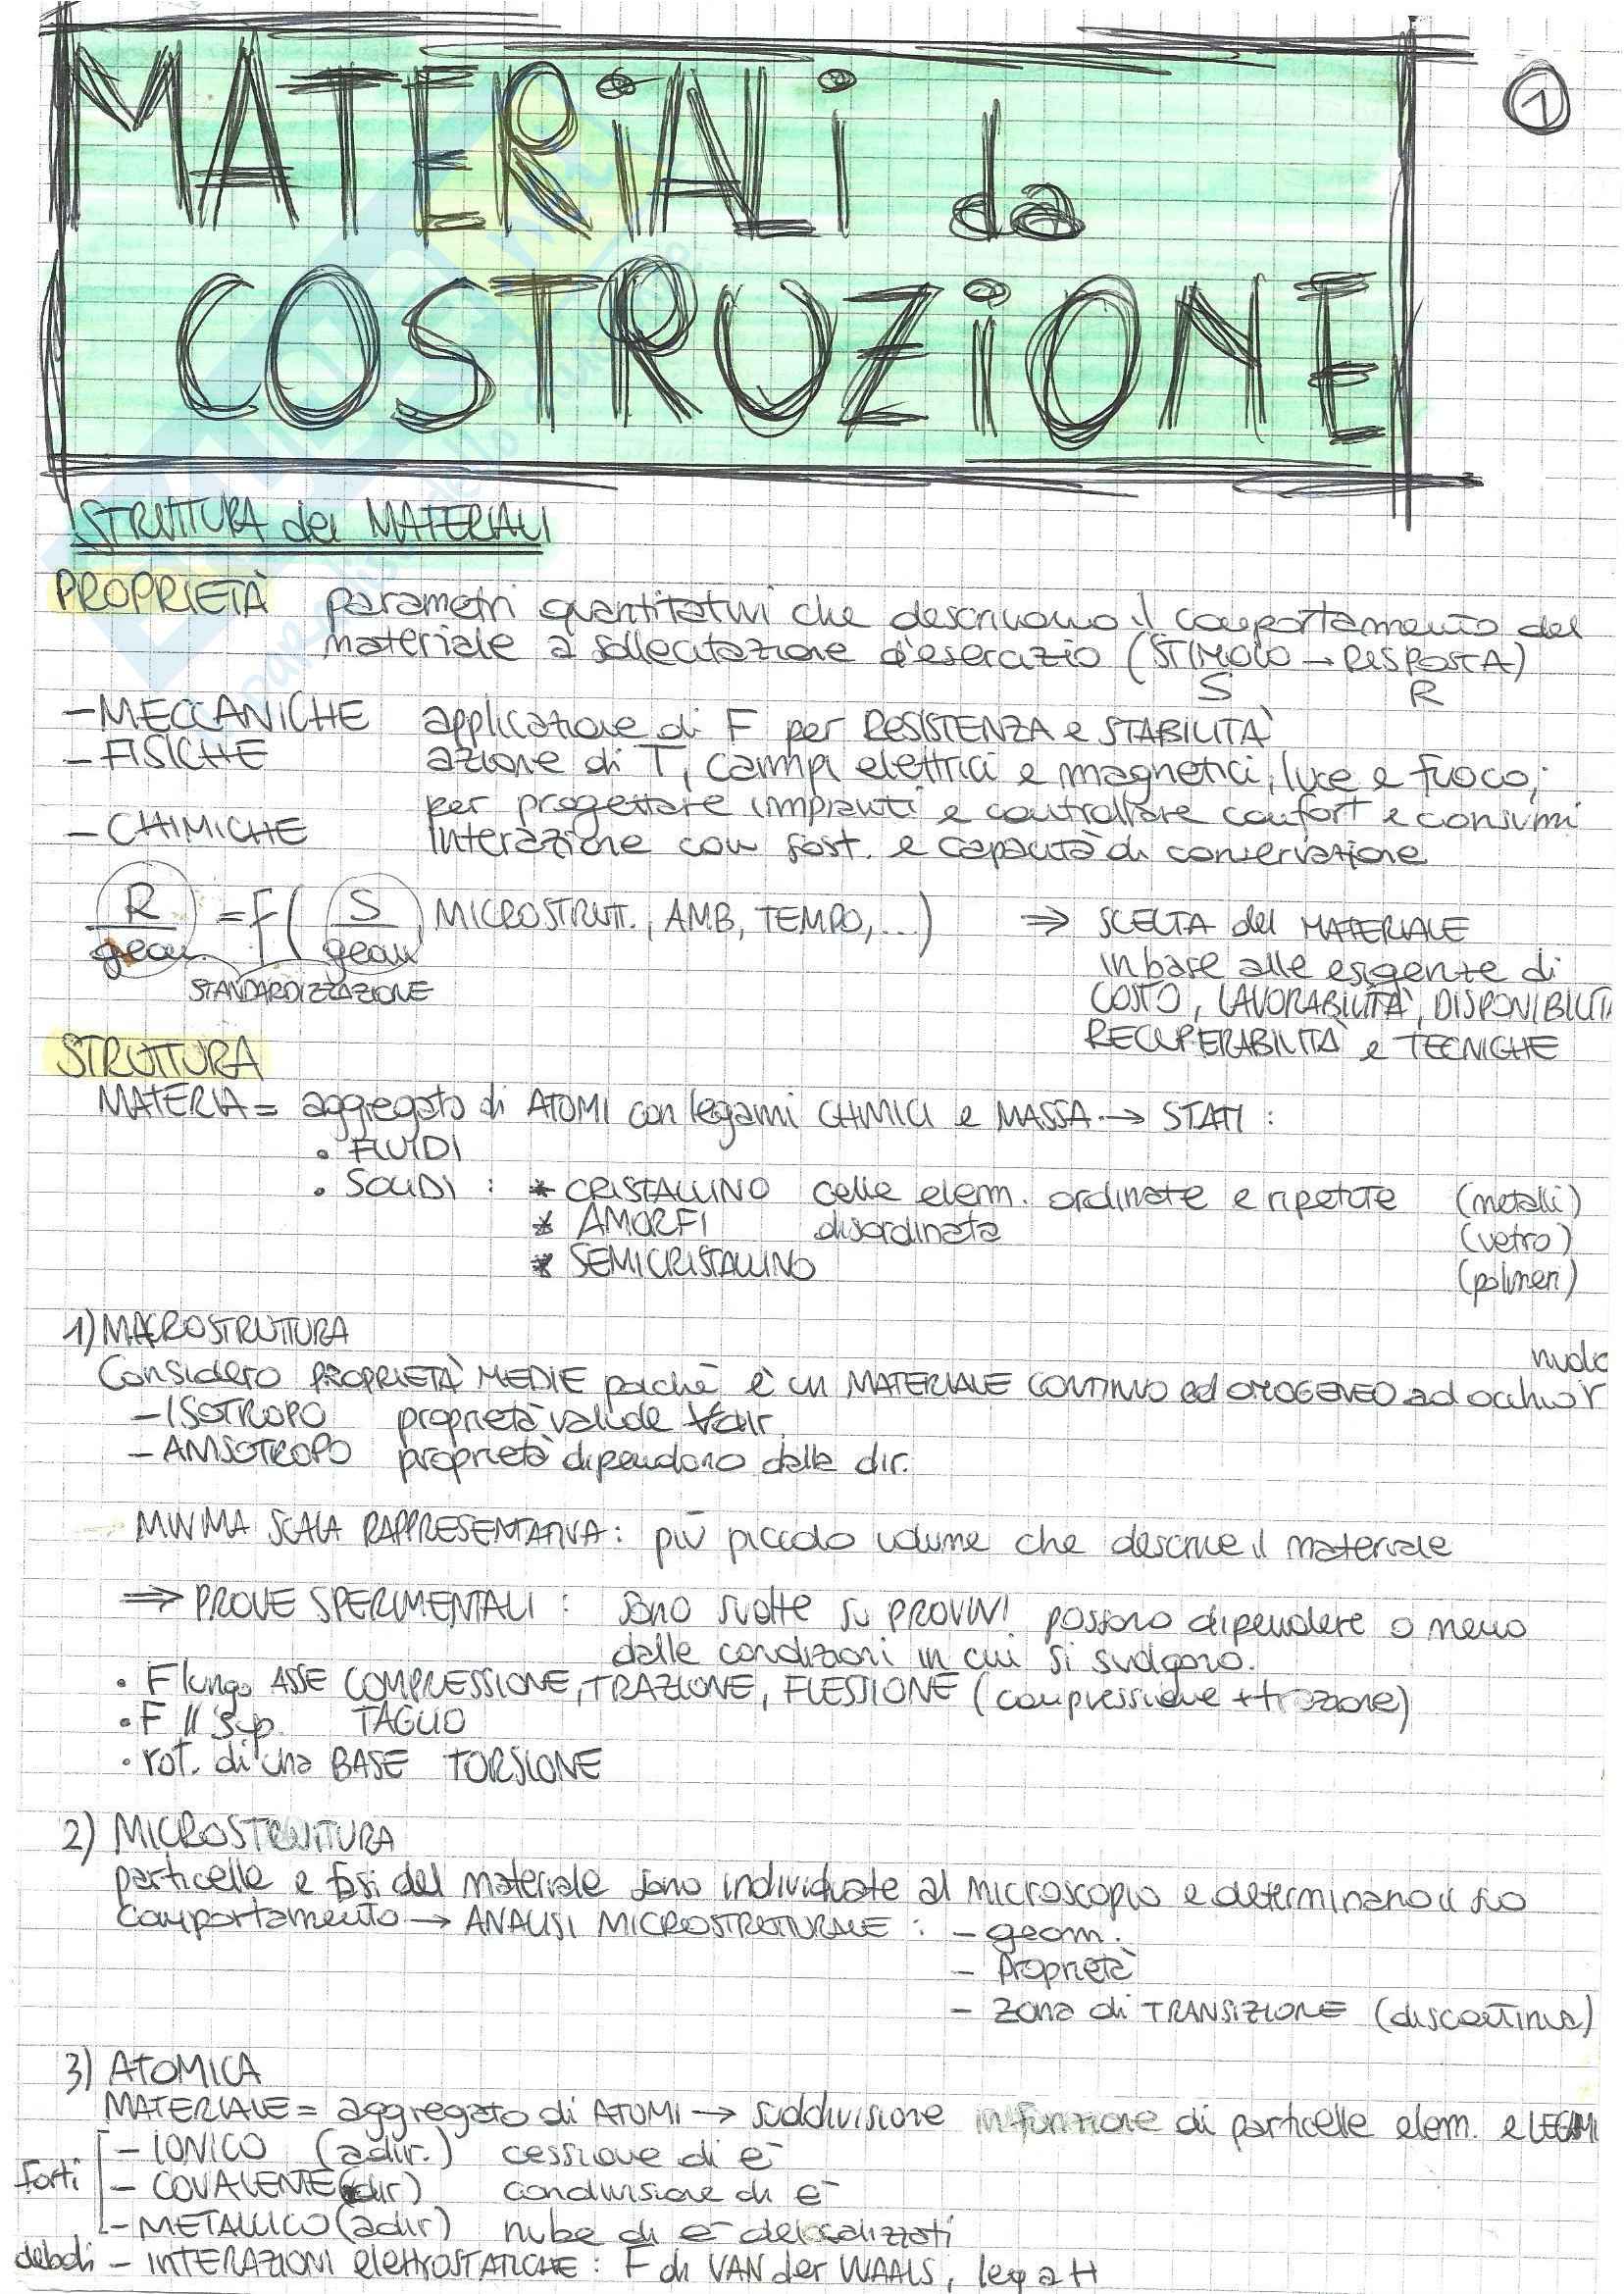 MATERIALI da
COSTRUZIONE
1
STRUTTURA dei MATERIALI
PROPRIETÀ parametri quantitativi che descrivono il comportamento del
materiale a sollecitazione d'esercizio (STIMOLO → RISPOSTA)
S R
- MECCANICHE applicazione di F per RESISTENZA e STABILITÀ
- FISICHE azione di T, campi elettrici e magnetici, luce e fuoco;
per progettare impianti e controllare confort e consumi
- CHIMICHE interazione con sost. e capacità di conservazione
R/geom. = f ( S/geom, MICROSTRUTT., AMB, TEMPO, ...) ⇒ SCELTA del MATERIALE
in base alle esigenze di
STANDARDIZZAZIONE COSTO, LAVORABILITÀ, DISPONIBILIT
RECUPERABILITÀ e TECNICHE
STRUTTURA
MATERIA = aggregato di ATOMI con legami CHIMICI e MASSA → STATI :
• FLUIDI
• SOLIDI : * CRISTALLINO celle elem. ordinate e ripetute (metalli)
* AMORFI disordinata (vetro)
* SEMICRISTALLINO (polimeri)
1) MACROSTRUTTURA
Considero PROPRIETÀ MEDIE poichè è un MATERIALE CONTINUO ed OMOGENEO ad occhio nudo
- ISOTROPO proprietà valide ∀dir.
- ANISOTROPO proprietà dipendono dalla dir.
MINIMA SCALA RAPPRESENTATIVA : più piccolo volume che descrive il materiale
⇒ PROVE SPERIMENTALI : sono svolte su PROVINI possono dipendere o meno
dalle condizioni in cui si svolgono.
• F lungo ASSE COMPRESSIONE, TRAZIONE, FLESSIONE (compressione + trazione)
• F // sup. TAGLIO
• rot. di una BASE TORSIONE
2) MICROSTRUTTURA
particelle e fasi del materiale sono individuate al microscopio e determinano il suo
comportamento → ANALISI MICROSTRUTTURALE : - geom.
- Proprietà
- Zona di TRANSIZIONE (discontinua)
3) ATOMICA
MATERIALE = aggregato di ATOMI → suddivisione in funzione di particelle elem. e LEGAMI
forti - IONICO (adir.) cessione di e-
- COVALENTE (dir) condivisione di e-
- METALLICO (adir) nube di e- delocalizzati
deboli - INTERAZIONI elettrOSTATICHE : F di VAN der WAALS, leg a H